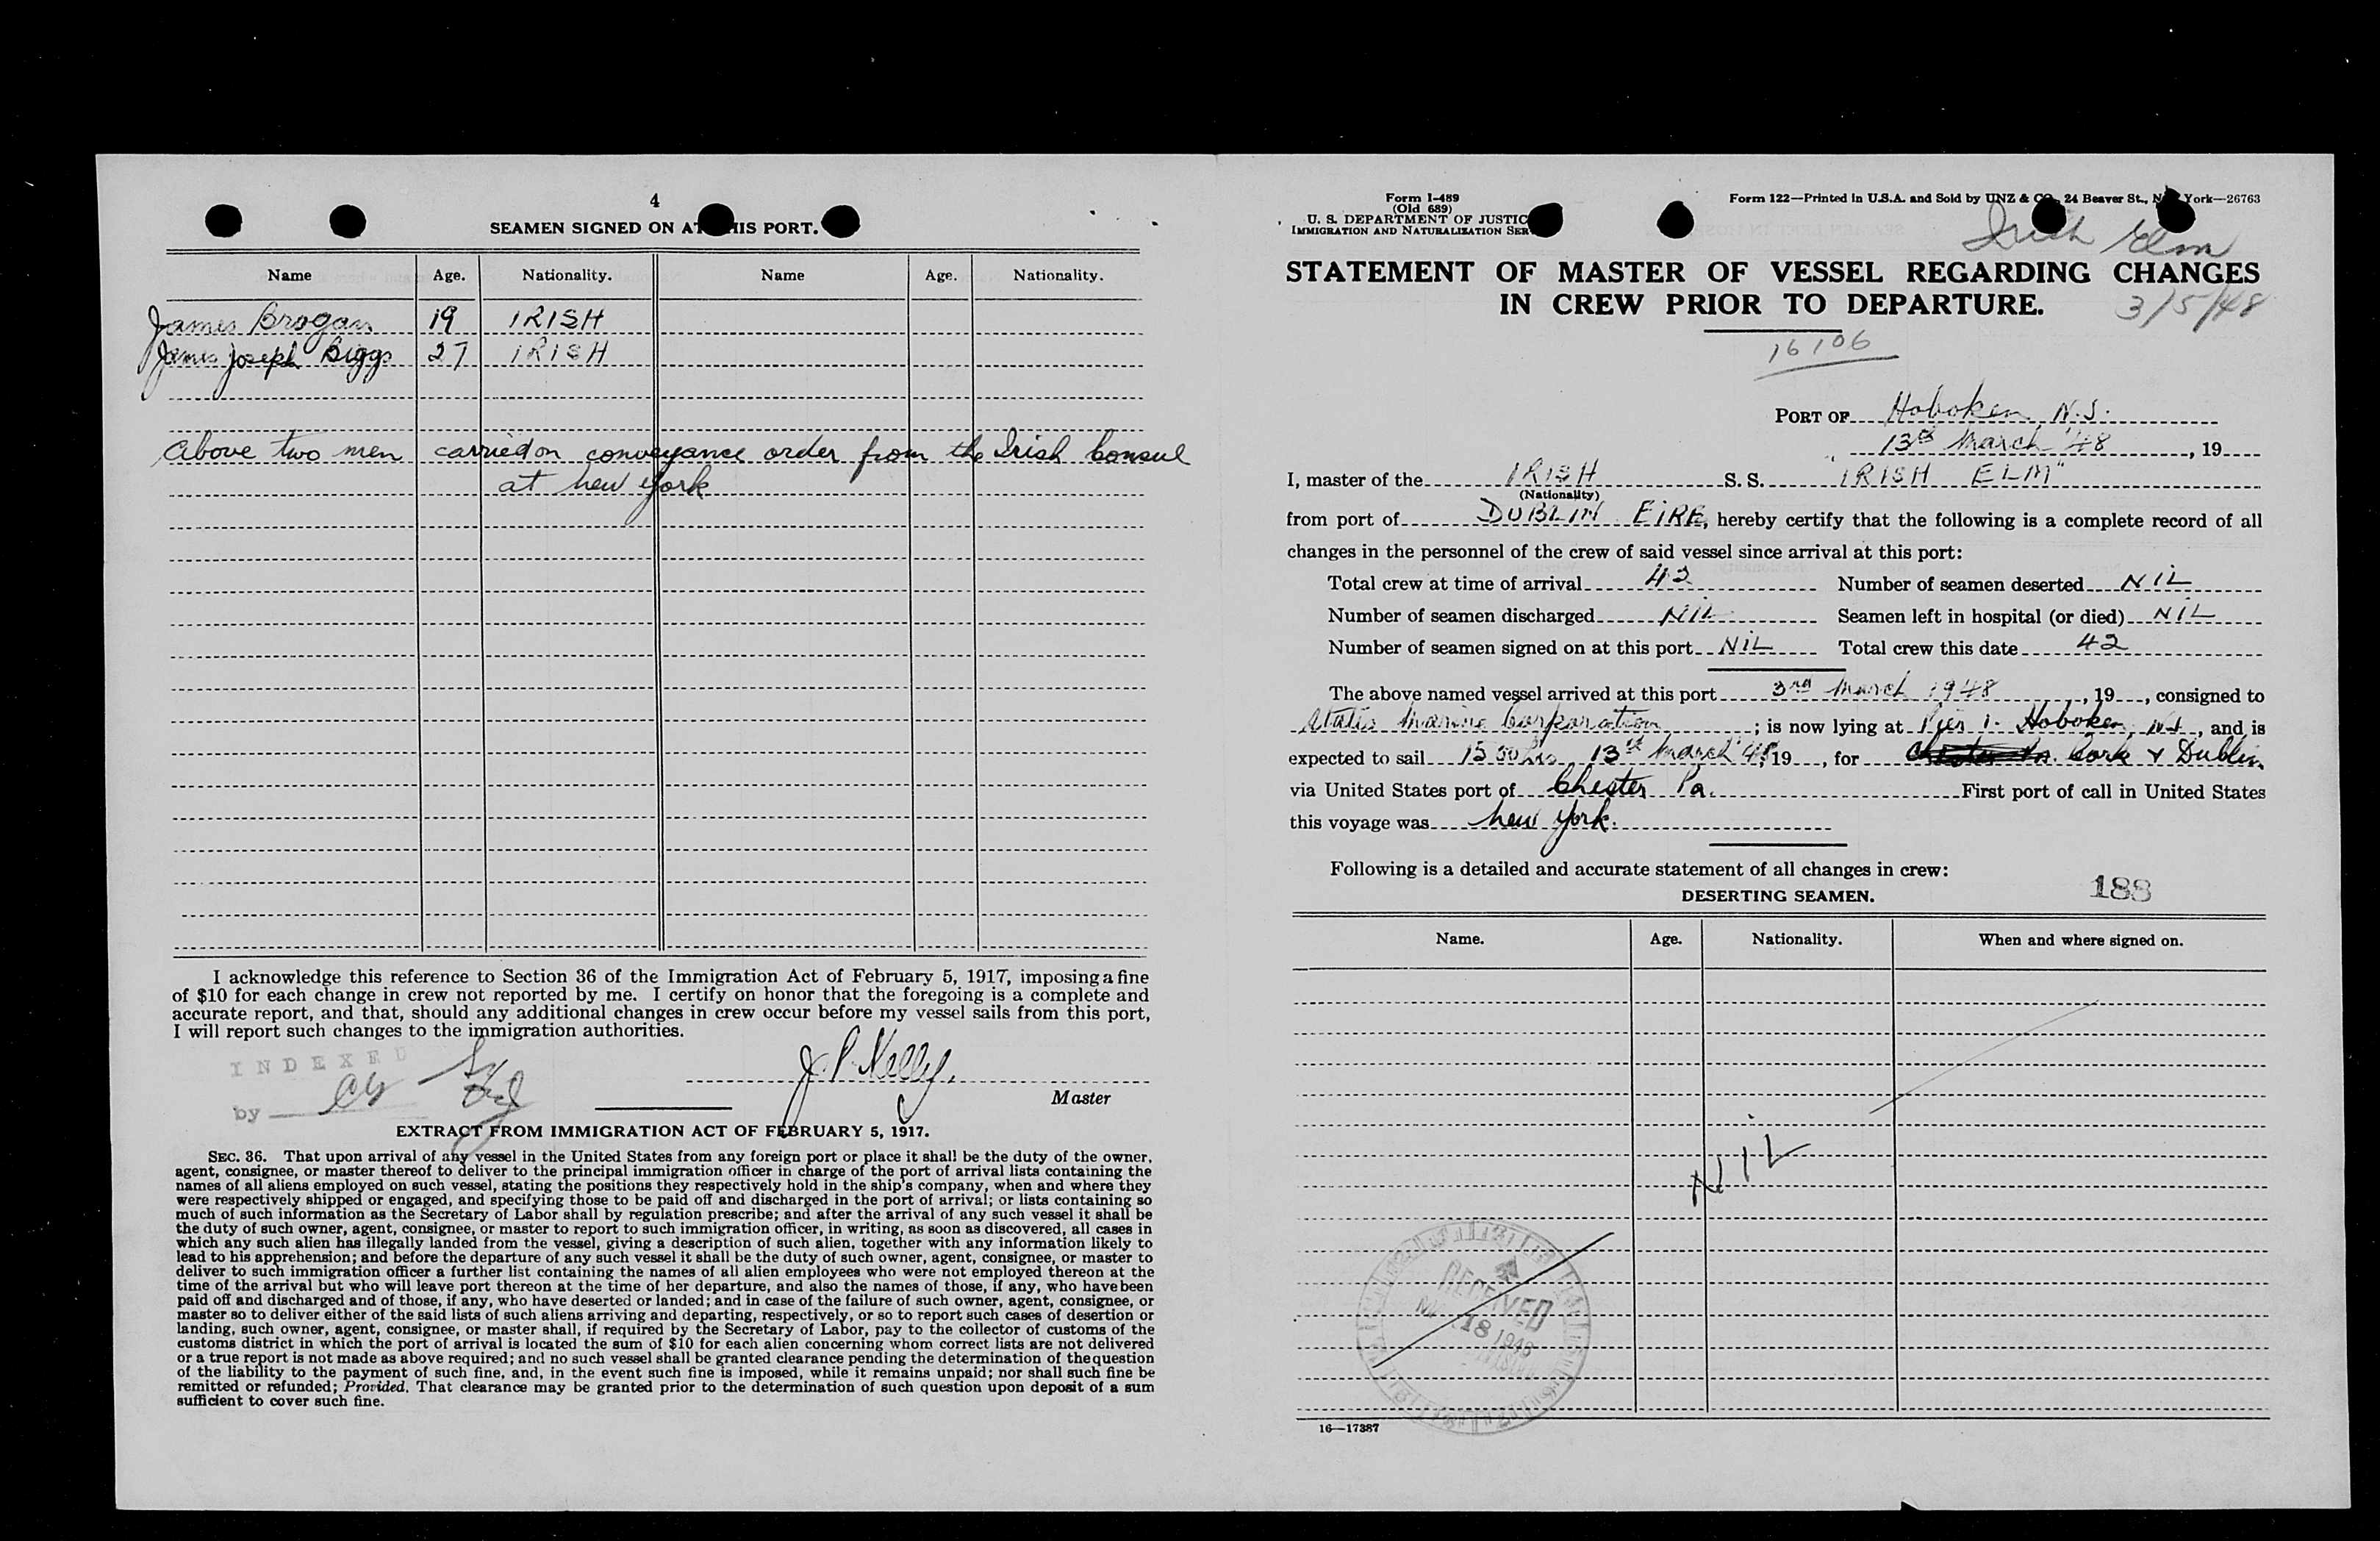 4
SEAMEN SIGNED ON AT THIS PORT.
Name Age. Nationality. Name Age. Nationality.
James Brogan 19 IRISH
James Joseph Biggs 27 IRISH
Above two men carried on conveyance order from the Irish Consul
at New York
I acknowledge this reference to Section 36 of the Immigration Act of February 5, 1917, imposing a fine
of $10 for each change in crew not reported by me. I certify on honor that the foregoing is a complete and
accurate report, and that, should any additional changes in crew occur before my vessel sails from this port,
I will report such changes to the immigration authorities.
INDEXED
by
J.P. Kelly.
Master
EXTRACT FROM IMMIGRATION ACT OF FEBRUARY 5, 1917.
SEC. 36. That upon arrival of any vessel in the United States from any foreign port or place it shall be the duty of the owner,
agent, consignee, or master thereof to deliver to the principal immigration officer in charge of the port of arrival lists containing the
names of all aliens employed on such vessel, stating the positions they respectively hold in the ship's company, when and where they
were respectively shipped or engaged, and specifying those to be paid off and discharged in the port of arrival; or lists containing so
much of such information as the Secretary of Labor shall by regulation prescribe; and after the arrival of any such vessel it shall be
the duty of such owner, agent, consignee, or master to report to such immigration officer, in writing, as soon as discovered, all cases in
which any such alien has illegally landed from the vessel, giving a description of such alien, together with any information likely to
lead to his apprehension; and before the departure of any such vessel it shall be the duty of such owner, agent, consignee, or master to
deliver to such immigration officer a further list containing the names of all alien employees who were not employed thereon at the
time of the arrival but who will leave port thereon at the time of her departure, and also the names of those, if any, who have been
paid off and discharged and of those, if any, who have deserted or landed; and in case of the failure of such owner, agent, consignee, or
master so to deliver either of the said lists of such aliens arriving and departing, respectively, or so to report such cases of desertion or
landing, such owner, agent, consignee, or master shall, if required by the Secretary of Labor, pay to the collector of customs of the
customs district in which the port of arrival is located the sum of $10 for each alien concerning whom correct lists are not delivered
or a true report is not made as above required; and no such vessel shall be granted clearance pending the determination of the question
of the liability to the payment of such fine, and, in the event such fine is imposed, while it remains unpaid; nor shall such fine be
remitted or refunded; Provided, That clearance may be granted prior to the determination of such question upon deposit of a sum
sufficient to cover such fine.
Form I-489
(Old 689)
U. S. DEPARTMENT OF JUSTIC
IMMIGRATION AND NATURALIZATION SER
Form 122—Printed in U.S.A. and Sold by UNZ & CO., 24 Beaver St., New York—26763
Irish Elm
STATEMENT OF MASTER OF VESSEL REGARDING CHANGES
IN CREW PRIOR TO DEPARTURE.
3/5/48
16106
PORT OF Hoboken, N.J.
13th March '48, 19
I, master of the IRISH S. S. "IRISH ELM"
(Nationality)
from port of DUBLIN EIRE, hereby certify that the following is a complete record of all
changes in the personnel of the crew of said vessel since arrival at this port:
Total crew at time of arrival 42 Number of seamen deserted NIL
Number of seamen discharged NIL Seamen left in hospital (or died) NIL
Number of seamen signed on at this port NIL Total crew this date 42
The above named vessel arrived at this port 3rd March 1948, 19, consigned to
States Marine Corporation; is now lying at Pier 1. Hoboken, N.J., and is
expected to sail 1500 hrs 13th March '48, 19, for Cork & Dublin
via United States port of Chester Pa. First port of call in United States
this voyage was New York.
Following is a detailed and accurate statement of all changes in crew:
188
DESERTING SEAMEN.
Name. Age. Nationality. When and where signed on.
NIL
RECEIVED
18 1948
16—17387